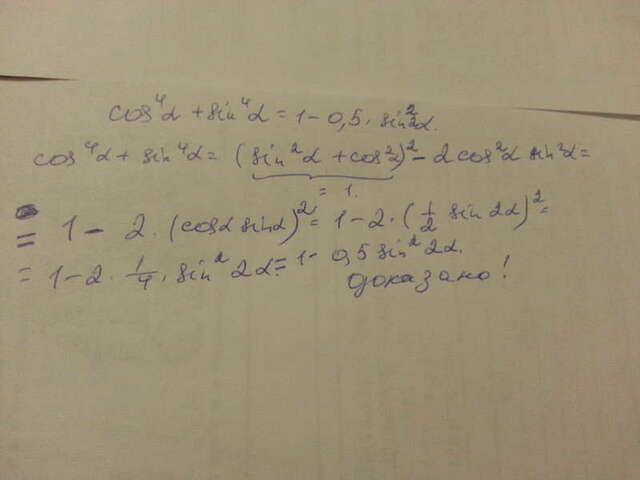 cos⁴α + sin⁴α = 1 - 0,5 · sin²2α.
cos⁴α + sin⁴α = (sin²α + cos²)² - 2cos²α sin²α =
= 1
= 1 - 2 · (cosα sinα)² = 1 - 2 · (½ sin 2α)² =
= 1 - 2 · ¼ · sin² 2α = 1 - 0,5 sin² 2α.
доказано!